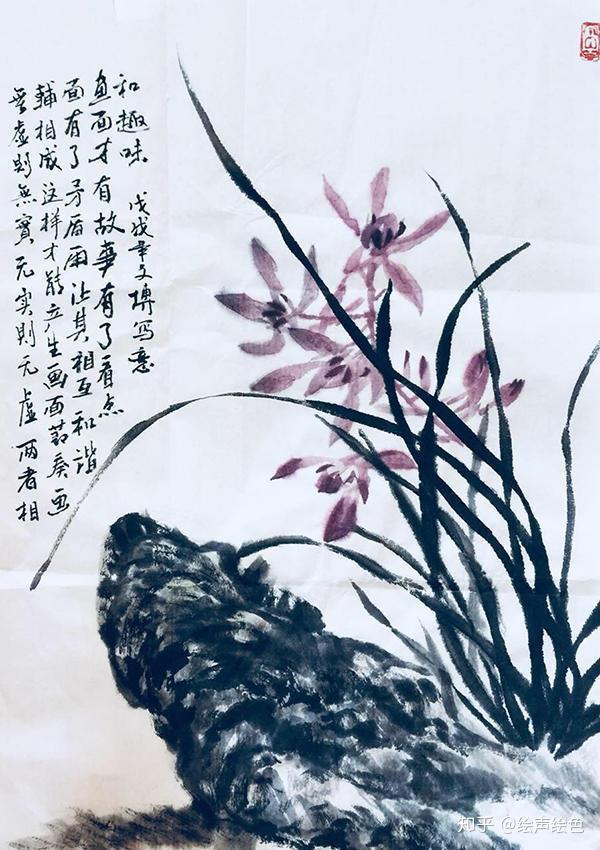 无虚則無實无实則无虚两者相
輔相成这样才能产生画面节奏画
面有了矛盾让其相互和谐
画面才有故事有了看点
和趣味 戊戌年文博写意
知乎 @绘声绘色